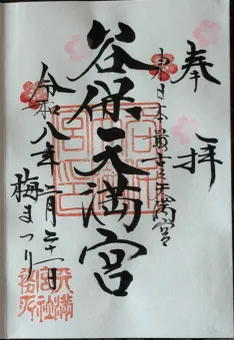 奉拝
東日本最古天満宮
谷保天満宮
令和八年二月二十一日
梅まつり
天満
宮社
務所